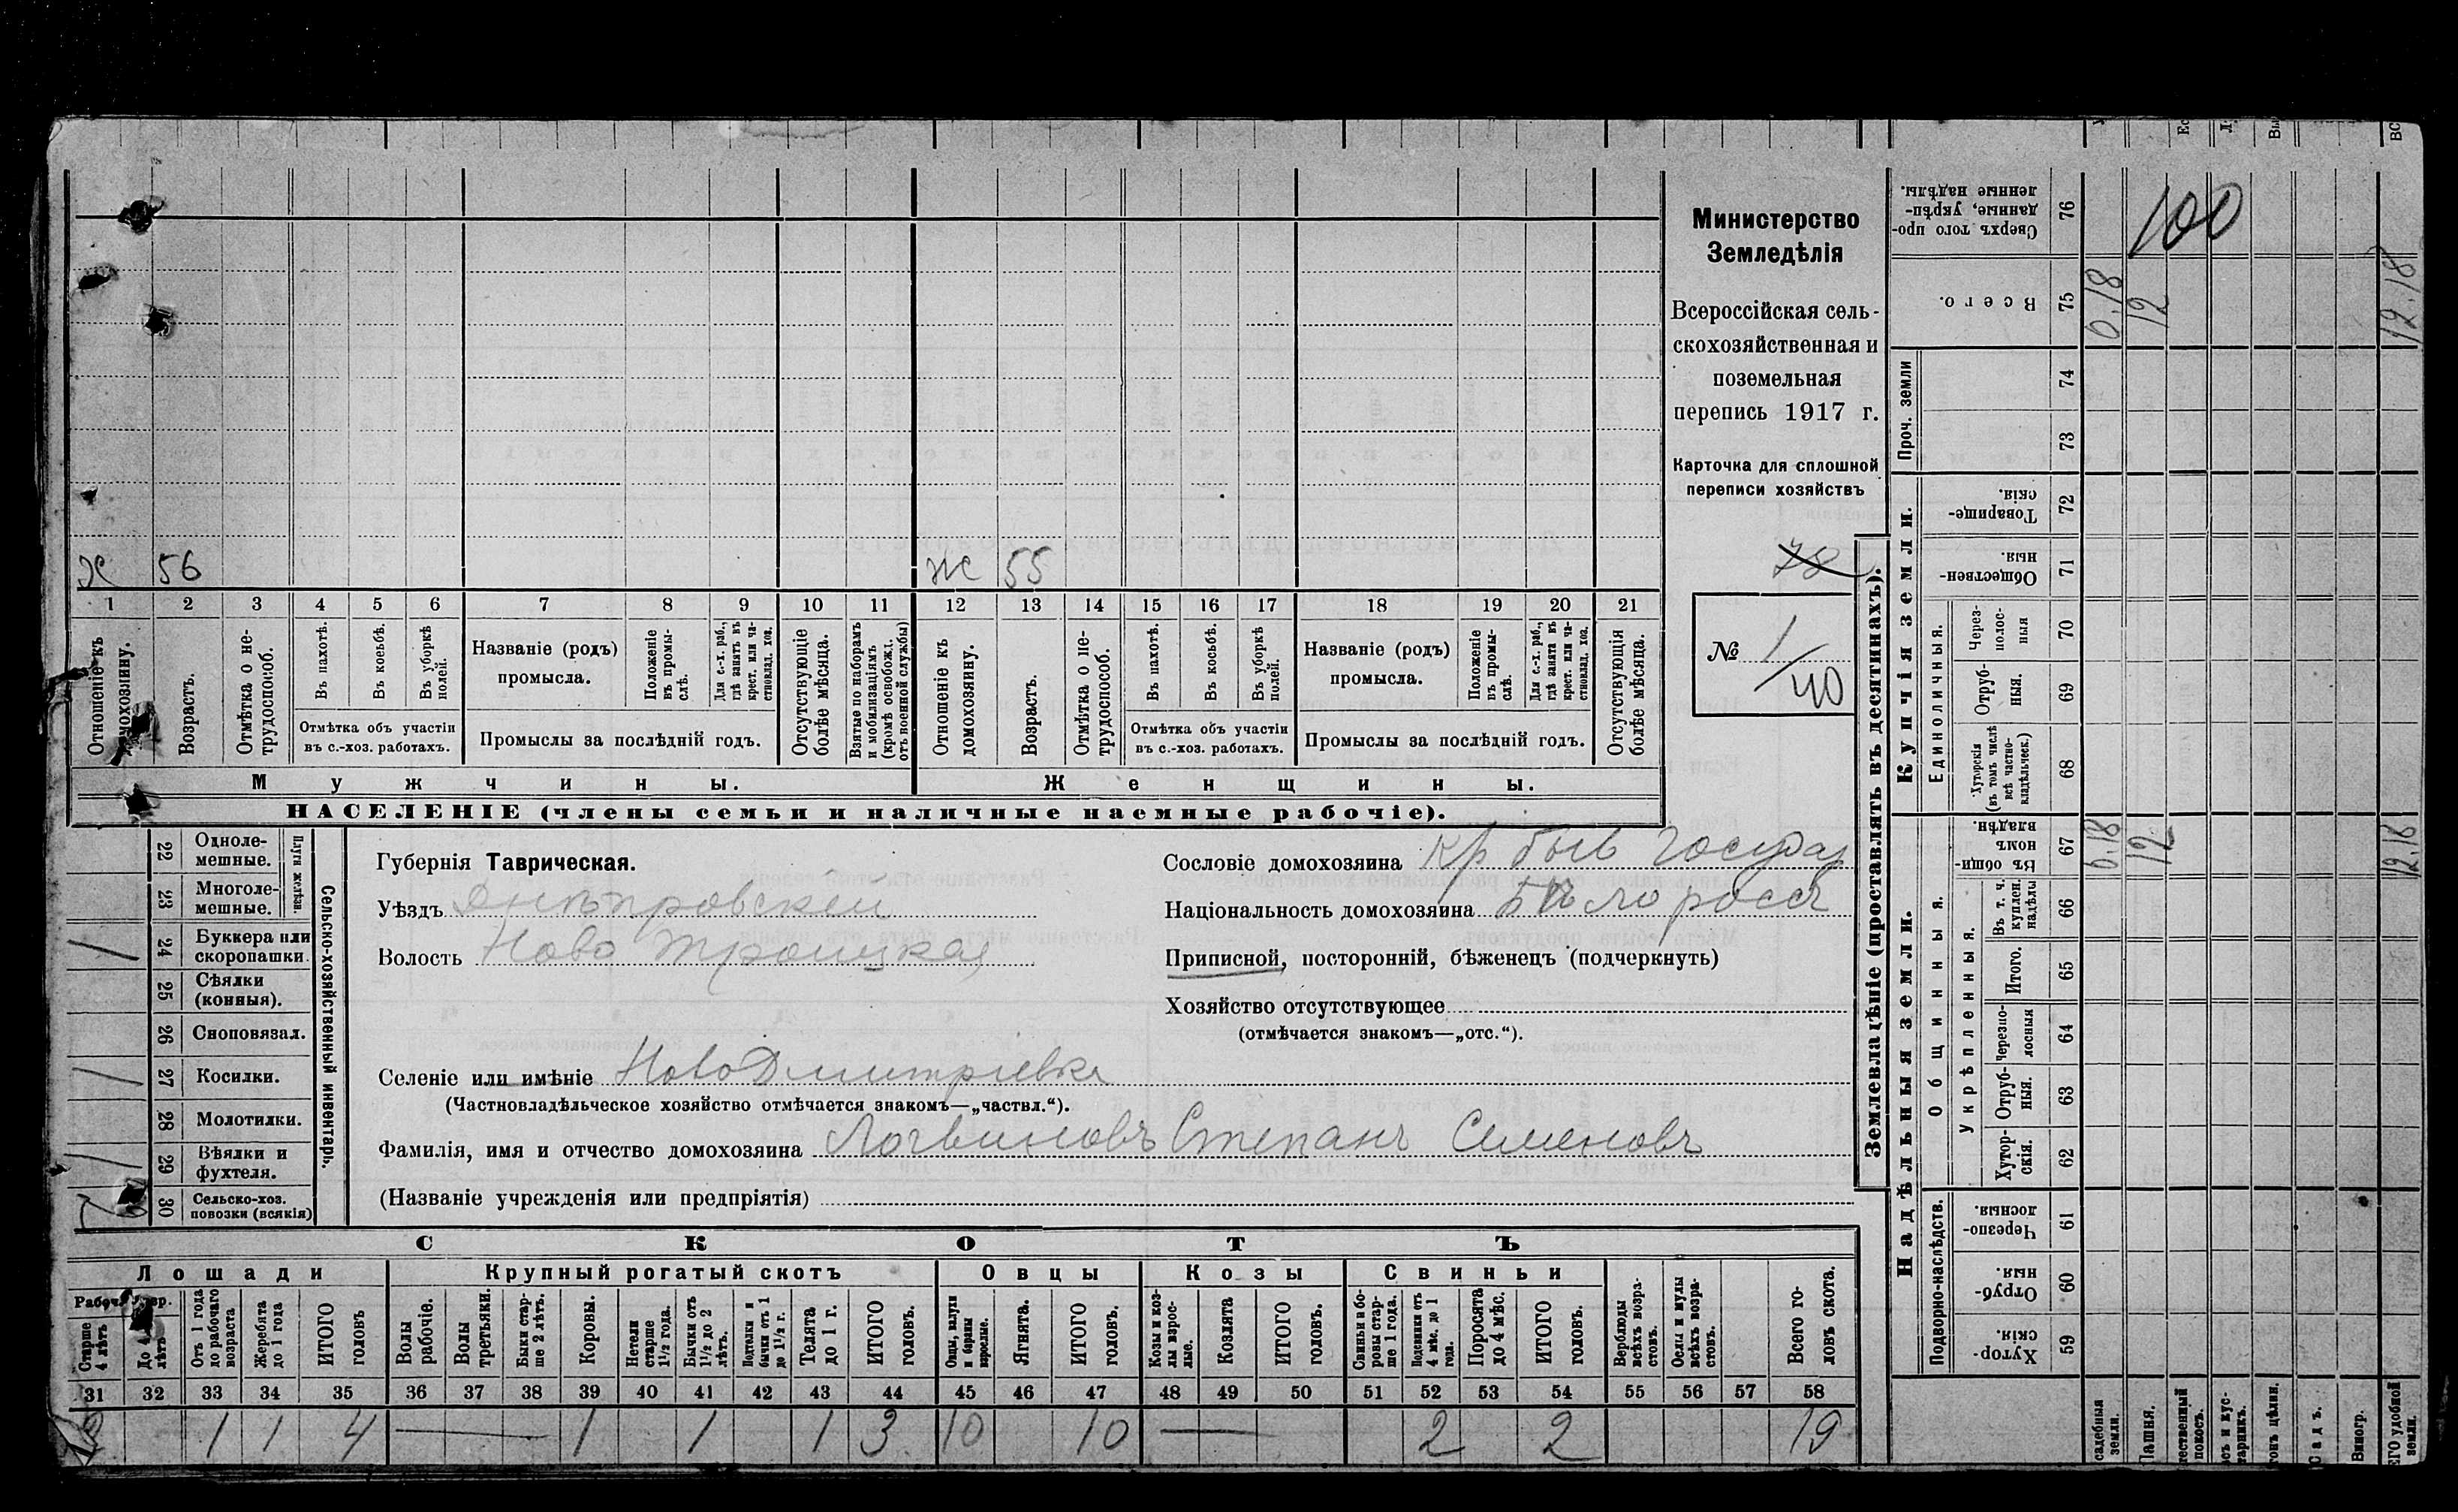 Министерство
Земледѣлія
Всероссійская сель-
скохозяйственная и
поземельная
перепись 1917 г.
Карточка для сплошной
переписи хозяйствъ
78
№ 1/40
х 56 ж 55
1 2 3 4 5 6 7 8 9 10 11 12 13 14 15 16 17 18 19 20 21
Отношеніе къ домохозяину.
Возрастъ.
Отмѣтка о не-
трудоспособ.
Въ пахотѣ.
Въ косьбѣ.
Въ уборкѣ
полей.
Отмѣтка объ участіи
въ с.-хоз. работахъ.
Названіе (родъ)
промысла.
Положеніе
въ промы-
слѣ.
Для с.-х. раб.,
гдѣ занятъ въ
крест. или ча-
стновлад. хоз.
Промыслы за послѣдній годъ.
Отсутствующіе
болѣе мѣсяца.
Взятые по наборамъ
и мобилизаціямъ
(кромѣ освобожд.
отъ военной службы)
Отношеніе къ
домохозяину.
Возрастъ.
Отмѣтка о не-
трудоспособ.
Въ пахотѣ.
Въ косьбѣ.
Въ уборкѣ
полей.
Отмѣтка объ участіи
въ с.-хоз. работахъ.
Названіе (родъ)
промысла.
Положеніе
въ промы-
слѣ.
Для с.-х. раб.,
гдѣ занята въ
крест. или ча-
стновлад. хоз.
Промыслы за послѣдній годъ.
Отсутствующія
болѣе мѣсяца.
Мужчины. Женщины.
НАСЕЛЕНІЕ (члены семьи и наличные наемные рабочіе).
Сельско-хозяйственный инвентарь.
Плуги желѣзн.
22 Одноле-
мешные.
23 Многоле-
мешные.
24 Буккера или
скоропашки.
25 Сѣялки
(конныя).
26 Сноповязал.
27 Косилки.
28 Молотилки.
29 Вѣялки и
фухтеля.
30 Сельско-хоз.
повозки (всякія)
Губернія Таврическая.
Уѣздъ Днѣпровскій
Волость Ново Троицкая
Сословіе домохозяина Кр быв Государ
Національность домохозяина Бѣлоросс
Приписной, посторонній, бѣженецъ (подчеркнуть)
Хозяйство отсутствующее
(отмѣчается знакомъ—„отс.“).
Селеніе или имѣніе НовоДмитріевка
(Частновладѣльческое хозяйство отмѣчается знакомъ—„частвл.“).
Фамилія, имя и отчество домохозяина Логвиновъ Степанъ Семеновъ
(Названіе учрежденія или предпріятія)
СКОТЪ
Лошади Крупный рогатый скотъ Овцы Козы Свиньи
Старше
4 лѣтъ
Отъ 1 года
до рабочаго
возраста
Жеребята
до 1 года
ИТОГО
головъ
Волы
рабочіе.
Волы
третьяки.
Быки стар-
ше 2 лѣтъ.
Коровы.
Нетели
старше
1½ года.
Бычки отъ
1½ до 2
лѣтъ.
Подтелки и
бычки отъ 1
до 1½ г.
Телята
до 1 г.
ИТОГО
головъ.
Овцы, валухи
и бараны
взрослые.
Ягнята.
ИТОГО
головъ.
Козы и коз-
лы взрос-
лые.
Козлята
ИТОГО
головъ.
Свиньи и бо-
ровы стар-
ше 1 года.
Подсвинки отъ
4 мѣс. до 1
года.
Поросята
до 4 мѣс.
ИТОГО
головъ.
Верблюды
всѣхъ возра-
стовъ.
Ослы и мулы
всѣхъ возра-
стовъ.
Всего го-
ловъ скота.
31 32 33 34 35 36 37 38 39 40 41 42 43 44 45 46 47 48 49 50 51 52 53 54 55 56 57 58
1 1 4 — 1 1 1 3 10 10 — 2 2 19
Землевладѣніе (проставлять въ десятинахъ).
Купчія земли.
Надѣльныя земли.
Сверхъ того про-
данные, укрѣп-
ленные надѣлы.
76
100
Всего.
75
0.18 12 12.18
Проч. земли
74
73
Товарище-
скія.
72
Обществен-
ныя.
71
Единоличныя.
Через-
полос-
ныя
70
Отруб-
ныя.
69
Хуторскія
(въ томъ числѣ
всѣ частно-
владѣльческ.)
68
Общинныя.
Въ общи-
номъ
владѣн.
67
0.18 12 12.18
Укрѣпленныя.
Въ т. ч.
куплен.
надѣлы
66
Итого.
65
Черезпо-
лосныя
64
Отруб-
ныя.
63
Хутор-
скія.
62
Подворно-наслѣдств.
Черезпо-
лосныя.
61
Отруб-
ныя.
60
Хутор-
скія.
59
Пашня.
Садъ.
Виногр.